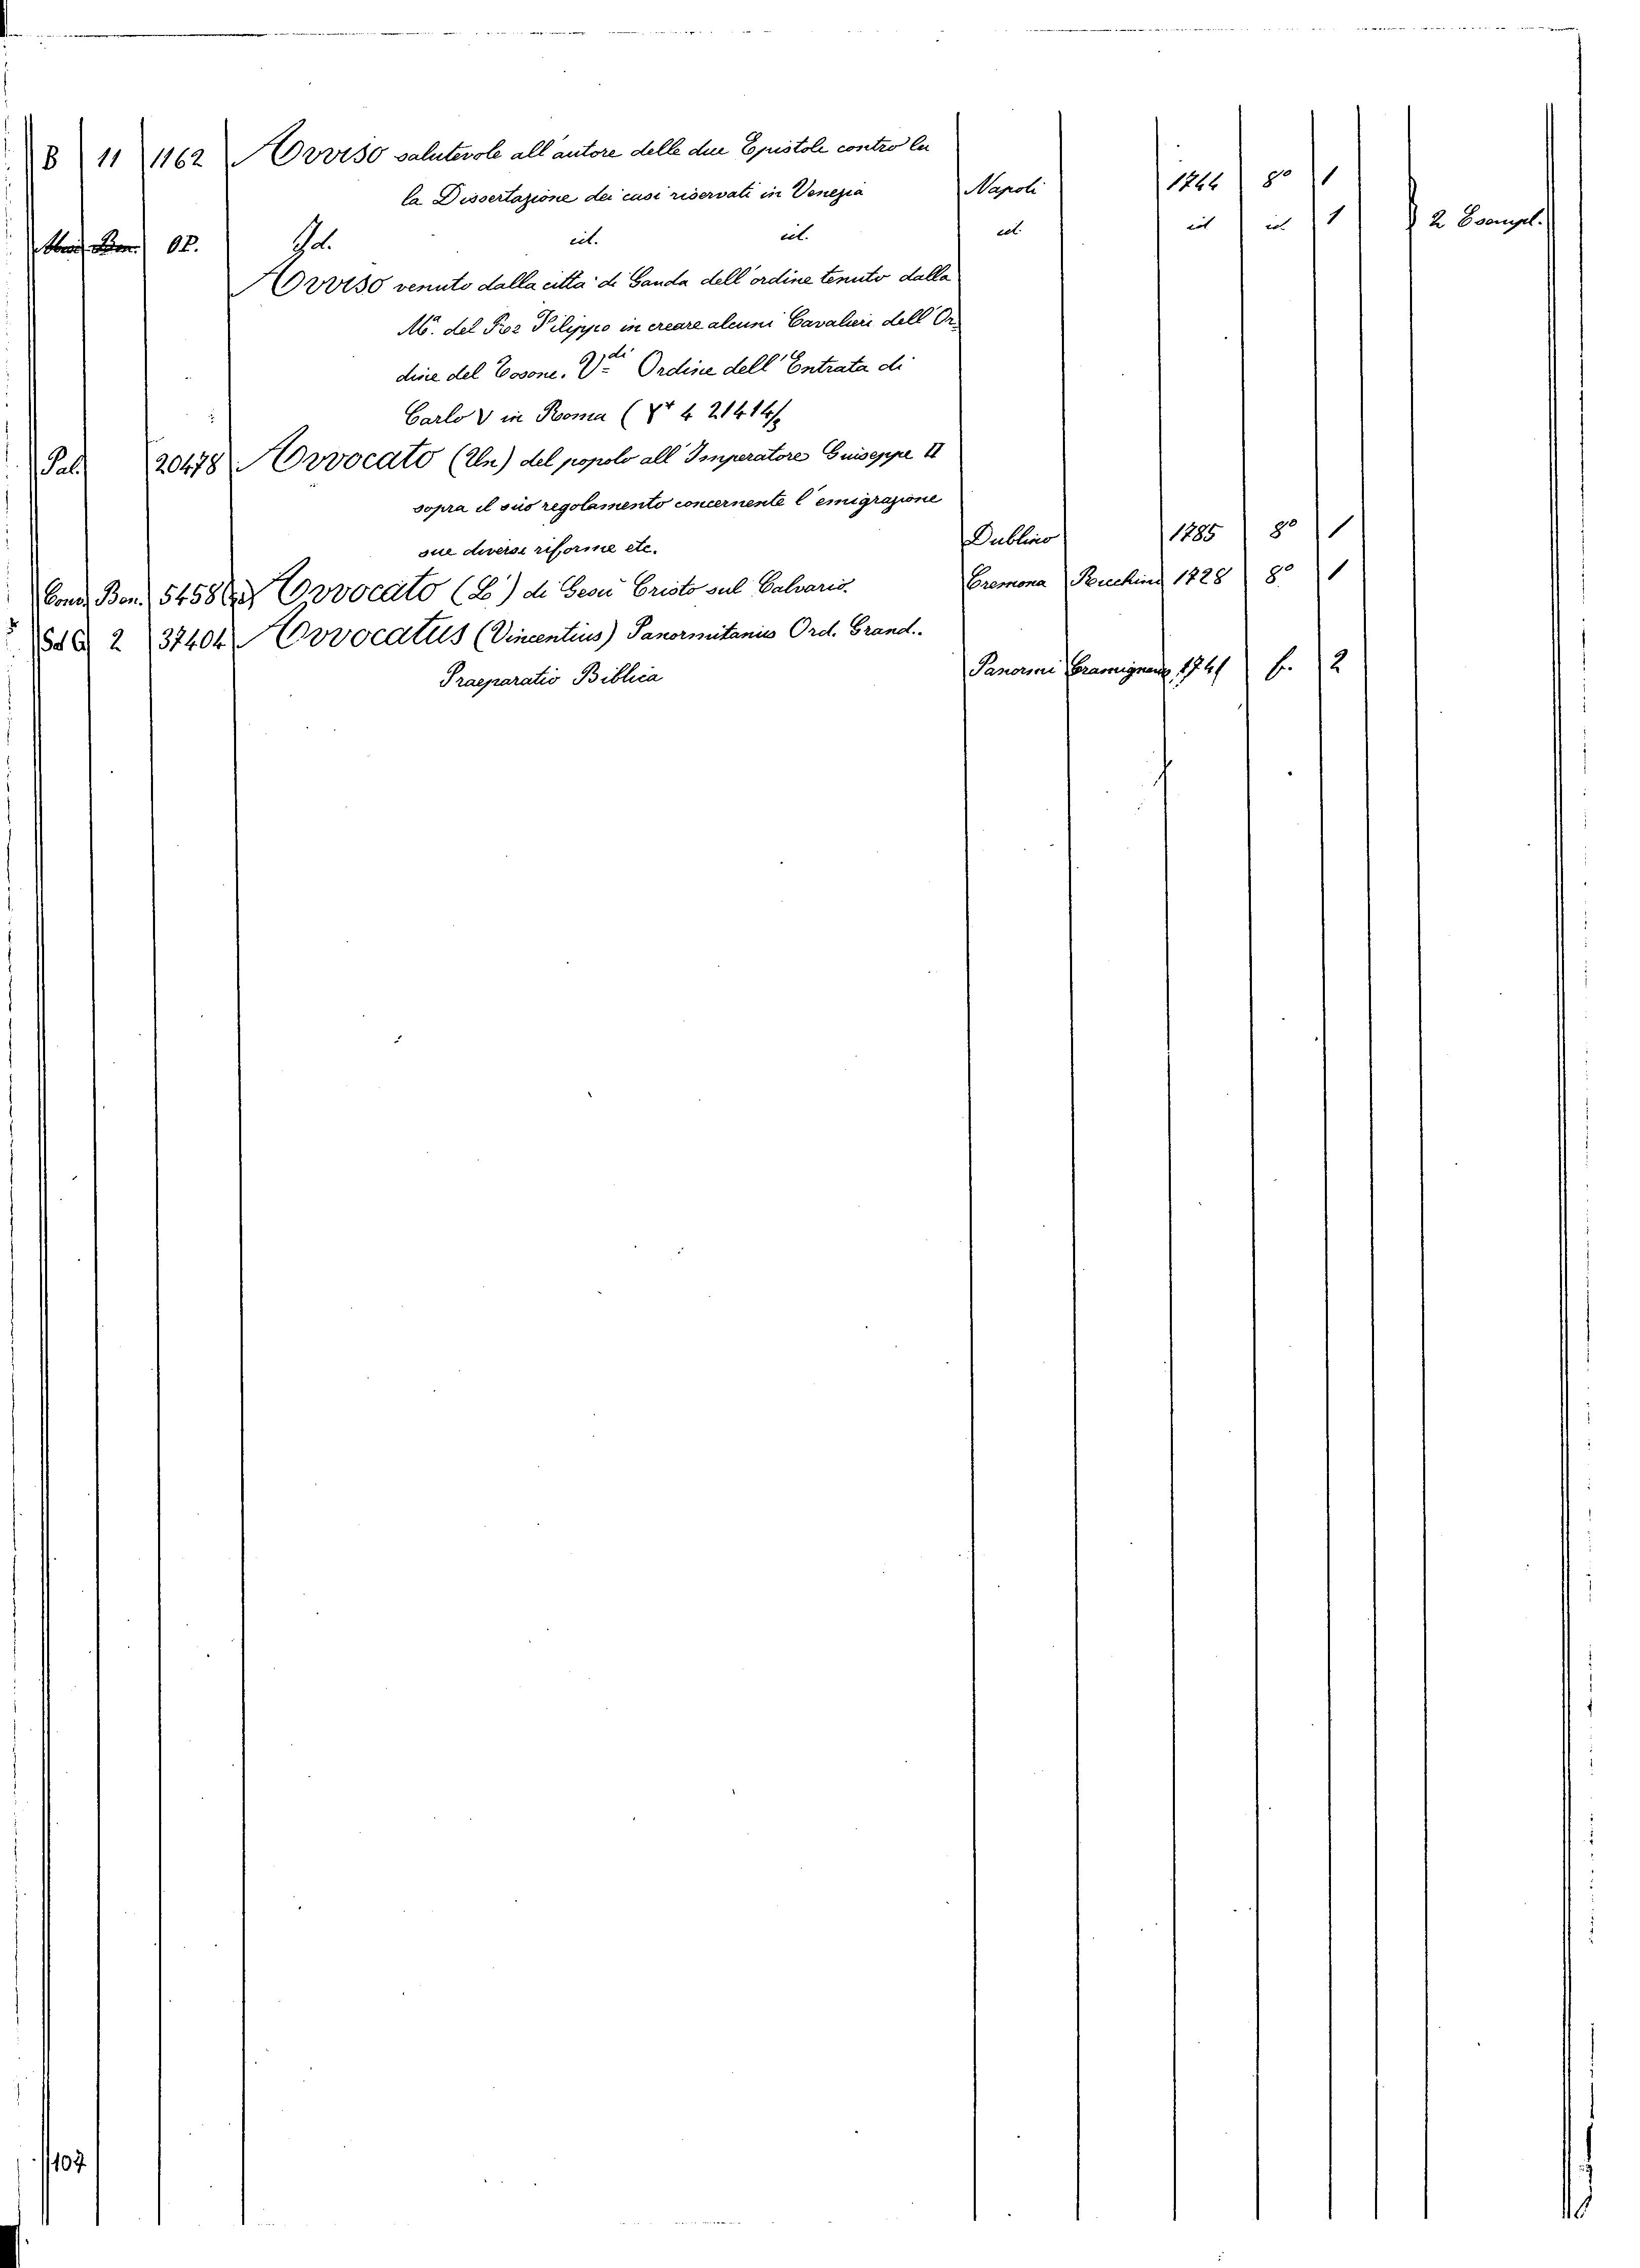 B 11 1162 Avviso salutevole all'autore delle due Epistole contro la
la Dissertazione dei casi riservati in Venezia Napoli 1744 8º 1
Ben. OP. Id. id. id. id. id id. 1 2 Esempl.
Avviso venuto dalla città di Ganda dell'ordine tenuto dalla
Mª. del Filippo in creare alcuni Cavalieri dell'Or
dine del Tosone. Vdi Ordine dell'Entrata di
Carlo V in Roma ( 4 21414)
Pal. 20478 Avvocato (Un) del popolo all'Imperatore Guiseppe II
sopra il suo regolamento concernente l'emigrazione
sue diverse riforme etc. Dublino 1785 8º 1
Cons. Bon. 5458 Avvocato (L') di Gesù Cristo sul Calvario. Cremona Ricchini 1728 8º 1
2 37404 Avvocatus (Vincentius) Panormitanus Ord. Grand.
Praeparatio Biblica Panormi Gramignani 1741 f. 2
107